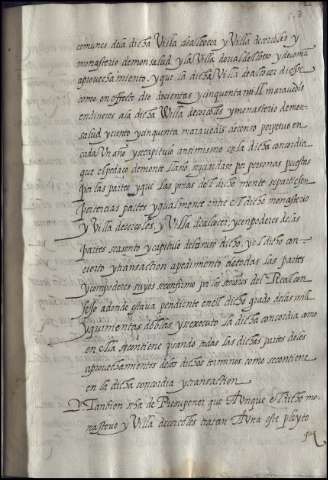 comunes de la dicha Villa de alcocer y Villa de cercoles y
monasterio de monsalud y la Villa de
aprovechamiento y que la dicha Villa de alcocer diese
como en effecto dio docientas y cinquenta mill maravedis
en dineros a la dicha Villa de cercoles y monasterio de mon
salud y ciento y cinquenta maravedis de censo perpetuo en
cada Un año y se capitulo ansimismo en la dicha concordia
que el pedaço de monte llano se partiese por personas puestas
por las partes y que las penas del dicho monte se partiesen
por tercias partes ygualmente entre el dicho monasterio
y Villa de cercoles y Villa de alcocer y en poder de las
partes se asento y capitulo de lo suso dicho y el dicho con
cierto y transaction a pedimiento de todas las partes
y con poderes suyos se confirmo por los señores del Real con
sejo adonde estava pendiente en el dicho grado de las mill
y quinientas doblas y se executo la dicha concordia como
en ella se contiene gozando todas las dichas partes de los
aprovechamientos de los dichos terminos como se contiene
en la dicha concordia y transaction
Tanbien se ha de presuponer que Aunque el dicho mo
nasterio y Villa de cercoles traian A Una este pleyto